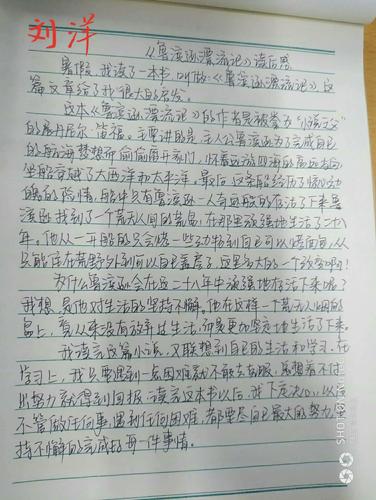 刘洋
《鲁滨逊漂流记》读后感
暑假,我读了一本书,叫做《鲁滨逊漂流记》这
篇文章给了我很大的启发。
这本《鲁滨逊漂流记》的作者是被誉为"小说之父"
的丹尼尔·笛福。主要讲的是主人公鲁滨逊为了完成自己
的航海梦想而偷偷离开家门,
坐船穿越了大西洋和太平洋。最后,这条船经历了惊心动
魄的险情,船中只有鲁滨逊一人
滨逊找到了一个荒无人烟的荒岛,在那里顽强地生活了二十八
年。他从一开始的只会
只能住在荒野外到可以自己盖房子,这是多大的一个改变啊!
为什么鲁滨逊会在这二十八年中顽强地存活下来呢?
我想,是他对生活的坚持不懈。他在这样一个荒无人烟的
岛上,看从来没有放弃过生活,而是更加坚定地生活了下来。
我读完这篇小说,又联想到自己的生活和学习。在
学习上,我只要遇到一点困难就不敢去克服,总想着不付
出努力就得到回报。读完这本书以后,我下定决心,以后
不管做任何事,遇到任何困难,都要尽自己最大的努力,坚
持不懈的完成好每一件事情。
SHOT ON